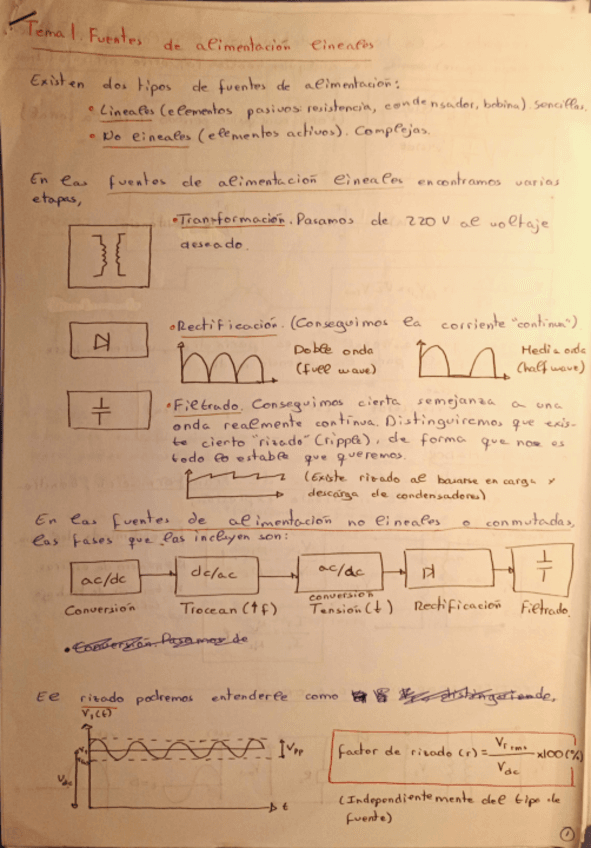 Tema 1. Fuentes de alimentación lineales
Existen dos tipos de fuentes de alimentación:
• Lineales (elementos pasivos: resistencia, condensador, bobina). Sencillas.
• No lineales (elementos activos). Complejas.
En las fuentes de alimentación lineales encontramos varias
etapas,
• Transformación. Pasamos de 220 V al voltaje
deseado.
• Rectificación. (Conseguimos la corriente "continua")
Doble onda
(full wave)
Media onda
(half wave)
• Filtrado. Conseguimos cierta semejanza a una
onda realmente continua. Distinguiremos que exis-
te cierto "rizado" (ripple), de forma que no es
todo lo estable que queremos.
(Existe rizado al basarse en carga y
descarga de condensadores)
En las fuentes de alimentación no lineales o conmutadas,
las fases que las incluyen son:
ac/dc
dc/ac
ac/dc
Conversión
Trocean (↑f)
conversión
Tensión (↓)
Rectificación
Filtrado.
• Conversión. Pasamos de
El rizado podremos entenderle como
V₁(t)
Vdc
Vpp
t
factor de rizado (r) = Vrms / Vdc x100 (%)
(Independientemente del tipo de
fuente)
1